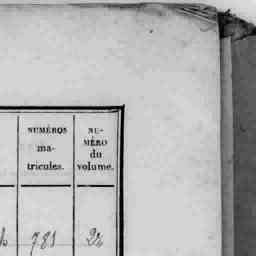 NUMÉROS
ma-
tricules.
NU-
MÉRO
du
volume.
781
22